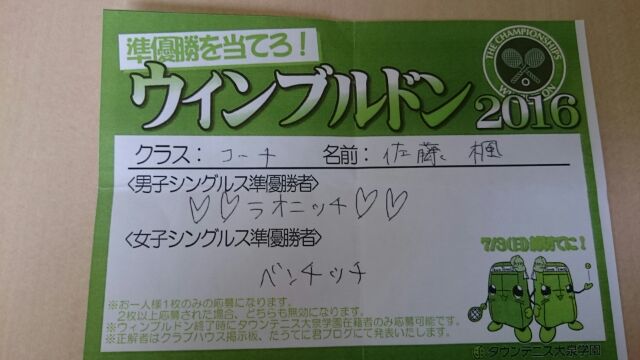 準優勝を当てろ！
THE CHAMPIONSHIPS
ウィンブルドン 2016
クラス： コーチ 名前： 佐藤 楓
<男子シングルス準優勝者>
♡♡ラオニッチ♡♡
<女子シングルス準優勝者>
ベンチッチ
※お一人様1枚のみの応募になります。
2枚以上応募された場合、どちらも無効になります。
※ウィンブルドン終了時にタウンテニス大泉学園在籍者のみ応募可能です。
※正解者はクラブハウス掲示板、だうてに君ブログにて発表いたします。
タウンテニス大泉学園